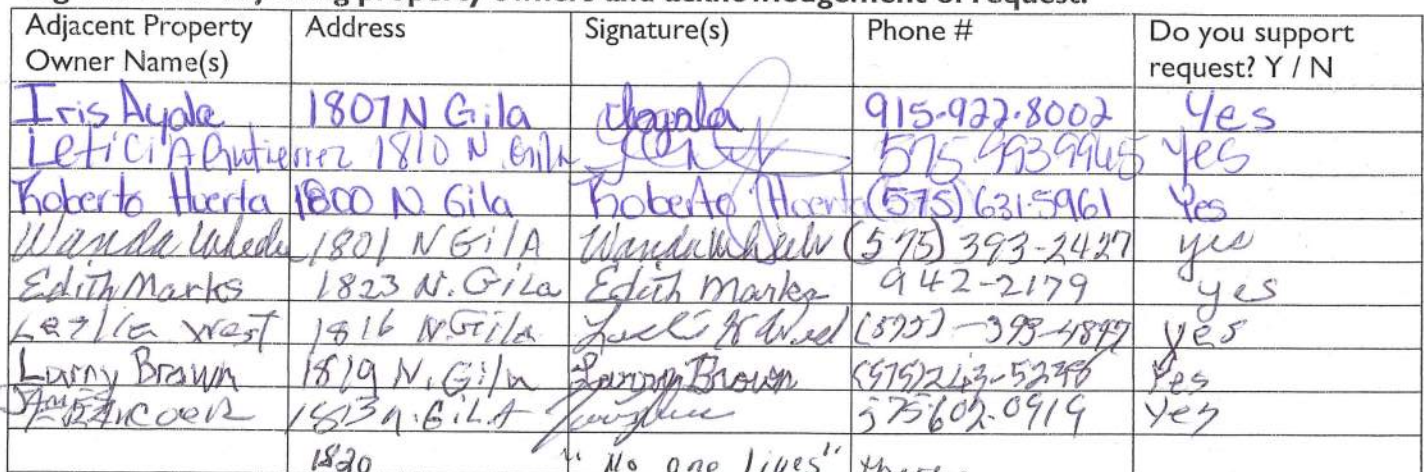 Adjacent Property Owner Name(s) Address Signature(s) Phone # Do you support request? Y / N
Iris Ayala 1807 N Gila 915-922-8002 Yes
Leticia Gutierrez 1810 N Gila 575 9939945 yes
Roberto Huerta 1800 N. Gila Roberto Huerta (575) 631-5961 Yes
Wanda 1801 N Gila Wanda (575) 393-2427 yes
Edith Marks 1823 N. Gila Edith Marks 942-2179 yes
Leslie West 1816 N Gila (575) -393-4897 yes
Larry Brown 1819 N. Gila Larry Brown (575) 243-5238 Yes
1813 n. GiLA 575 602-0919 Yes
1820 "No one lives" there